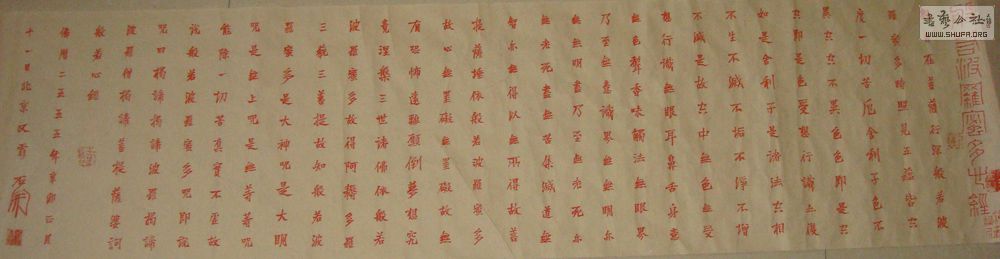 若波羅蜜多心經
在菩薩行深般若波
羅蜜多時照見五蘊皆空
度一切苦厄舍利子色不
異空空不異色色即是空
空即是色受想行識亦復
如是舍利子是諸法空相
不生不滅不垢不淨不增
不減是故空中色無受
想行識無眼耳鼻舌身意
無色聲香味觸法無眼界
乃至無意識界無無明亦
無無明盡乃至無老死亦
無老死盡無苦集滅道無
智亦無得以無所得故菩
提薩埵依般若波羅蜜多
故心無罣礙無罣礙故無
有恐怖遠離顛倒夢想究
竟涅槃三世諸佛依般若
波羅蜜多故得阿耨多羅
三藐三菩提故知般若波
羅蜜多是大神咒是大明
咒是無上咒是無等等咒
能除一切苦真實不虛故
說般若波羅蜜多咒即說
咒曰揭諦揭諦波羅揭諦
波羅僧揭諦菩提薩婆訶
般若心經
佛曆二五五五年辛卯正月
十一日北京
書藝公社
WWW.SHUFA.ORG